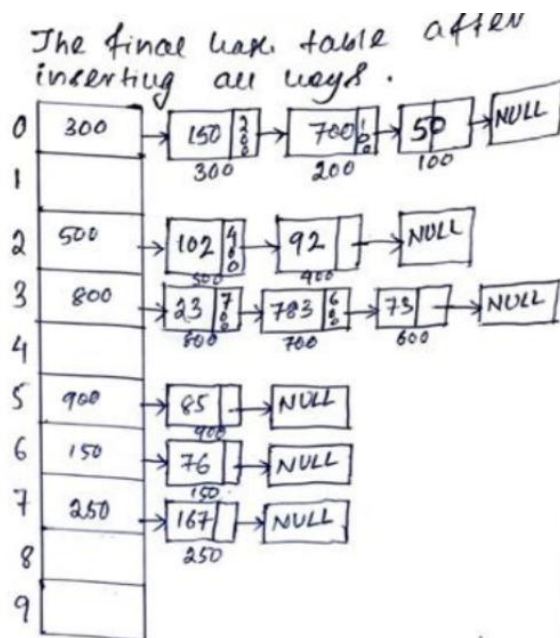 The final hash table after
inserting all keys.
0 300 150 200 700 100 50 NULL
300 200 100
1
2 500 102 400 92 NULL
500 400
3 800 23 700 783 600 73 NULL
800 700 600
4
5 900 85 NULL
900
6 150 76 NULL
150
7 250 167 NULL
250
8
9